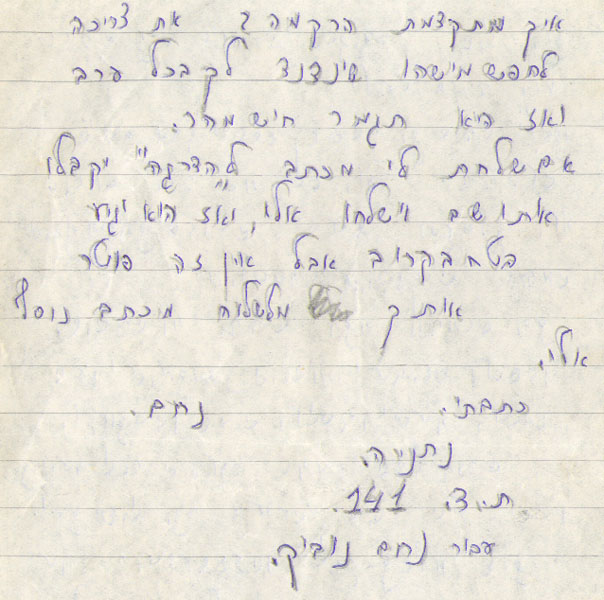 איך מתקדמת הרקמה? את צריכה
לחפש מישהו שינדנד לך בכל ערב
ואז היא תגמר חיש מהר.
אם שלחת לי מכתב ל"הדרגה" יקבלו
אותו שם וישלחו אלי, ואז הוא יגיע
בטח בקרוב אבל אין זה פוטר
אותך מלשלוח מכתב נוסף
אלי.
כתבתי. נחום.
נתניה.
ת.ד. 141.
עבור נחום נוביק.